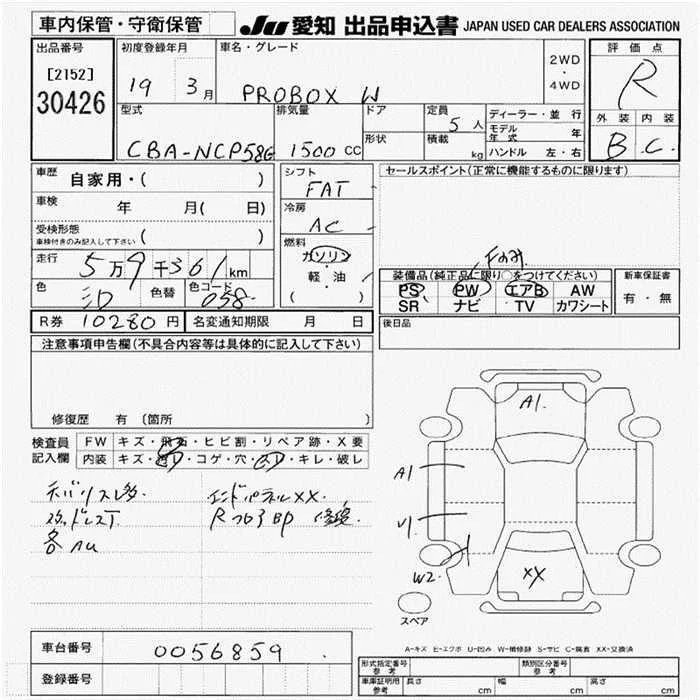 車内保管・守衛保管
JU 愛知 出品申込書 JAPAN USED CAR DEALERS ASSOCIATION
出品番号
[2152]
30426
初度登録年月
19 3月
車名・グレード
PROBOX W
2WD
・
4WD
評価点
R
外装 内装
B C
型式
CBA-NCP58G
排気量
1500 CC
ドア
形状
定員
5人
積載
kg
ディーラー・並行
モデル年式 年
ハンドル 左・右
車歴 自家用・( )
車検 年 月( 日)
受検形態
車検付きのみ記入して下さい ( )
走行 5万9千361km
色 色替 色コード 058
シフト
FAT
冷房
AC
燃料
ガソリン
・
軽・油
( )
セールスポイント(正常に機能するものに限ります)
装備品(純正品に限り○をつけてください)
PS PW エアB AW
SR ナビ TV カワシート
新車保証書
有・無
後日品
R券 10280円 名変通知期限 月 日
注意事項申告欄(不具合内容等は具体的に記入して下さい)
修復歴 有 〔箇所 〕
検査員
記入欄
FW キズ・飛石・ヒビ割・リペア跡・X要
内装 キズ・コゲ・穴・キレ・破レ
各AU
エンドパネルXX
A1
A1
W2
XX
スペア
A-キズ E-エクボ U-凹み W-補修跡 S-サビ C-腐食 XX-交換済
車台番号 0056859
登録番号
形式指定番号 参考 類別区分番号 参考
車庫証明用 参考 長さ cm 幅 cm 高さ cm